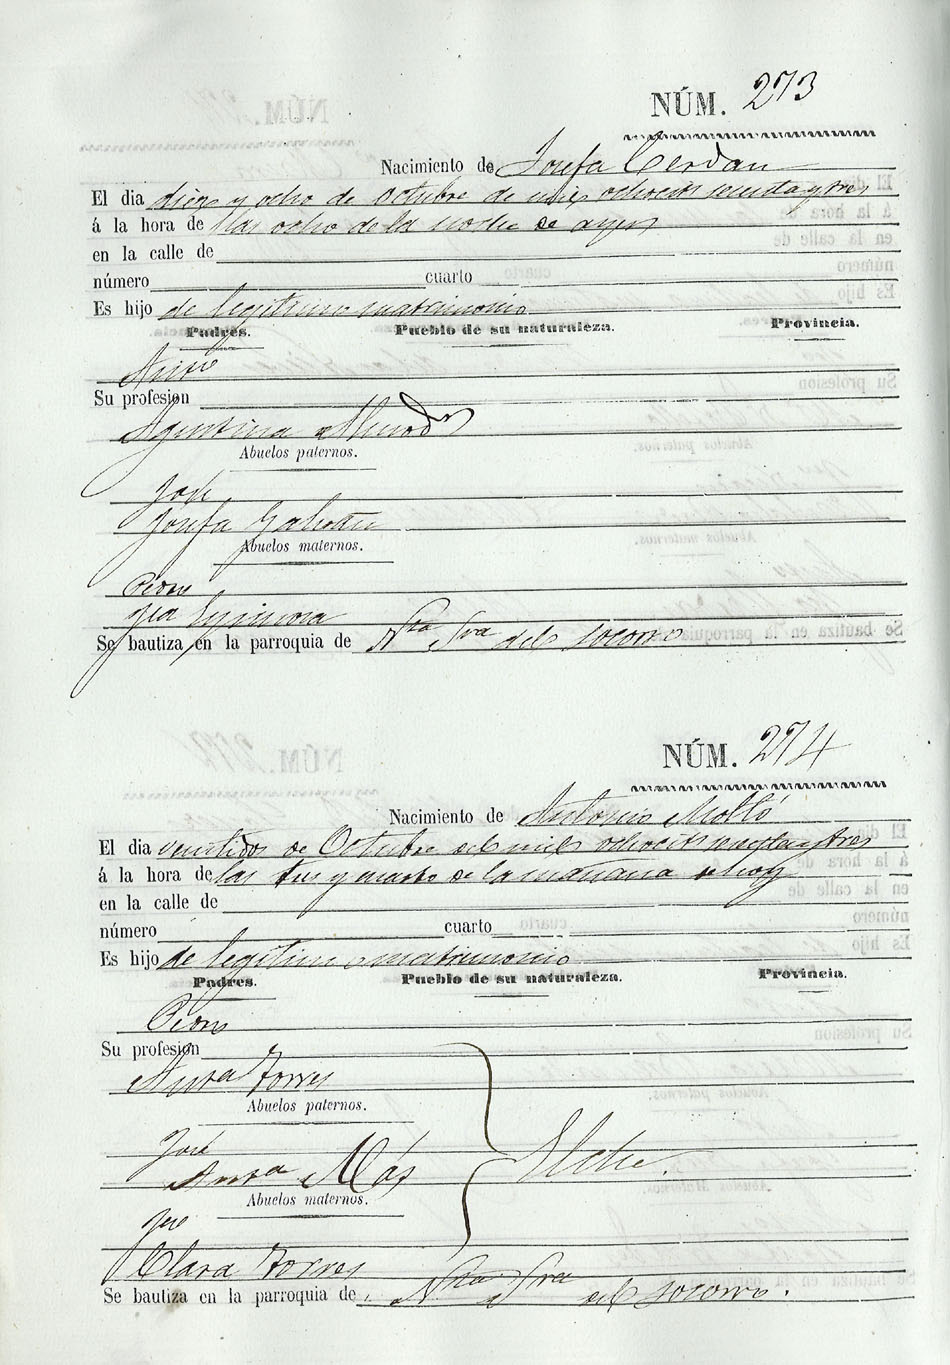 NÚM. 273
Nacimiento de Josefa Cerdan
El dia diez y ocho de Octubre de mil ochocts setenta y tres
á la hora de las ocho de la noche de ayer
en la calle de
número cuarto
Es hijo de legitimo matrimonio
Padres. Pueblo de su naturaleza. Provincia.
Su profesion
Agustina
Abuelos paternos.
José
Josefa
Abuelos maternos.
Pedro
Espinosa
Se bautiza en la parroquia de Ntra Sra del Socorro
NÚM. 274
Nacimiento de Antonio Molló
El dia veintidos de Octubre del mil ochocts setenta y tres
á la hora de las tres y cuarto de la mañana de hoy
en la calle de
número cuarto
Es hijo de legitimo matrimonio
Padres. Pueblo de su naturaleza. Provincia.
Pedro
Su profesion
Torres
Abuelos paternos.
José
Más Elche.
Abuelos maternos.
José
Clara Torres
Se bautiza en la parroquia de Ntra Sra del Socorro.